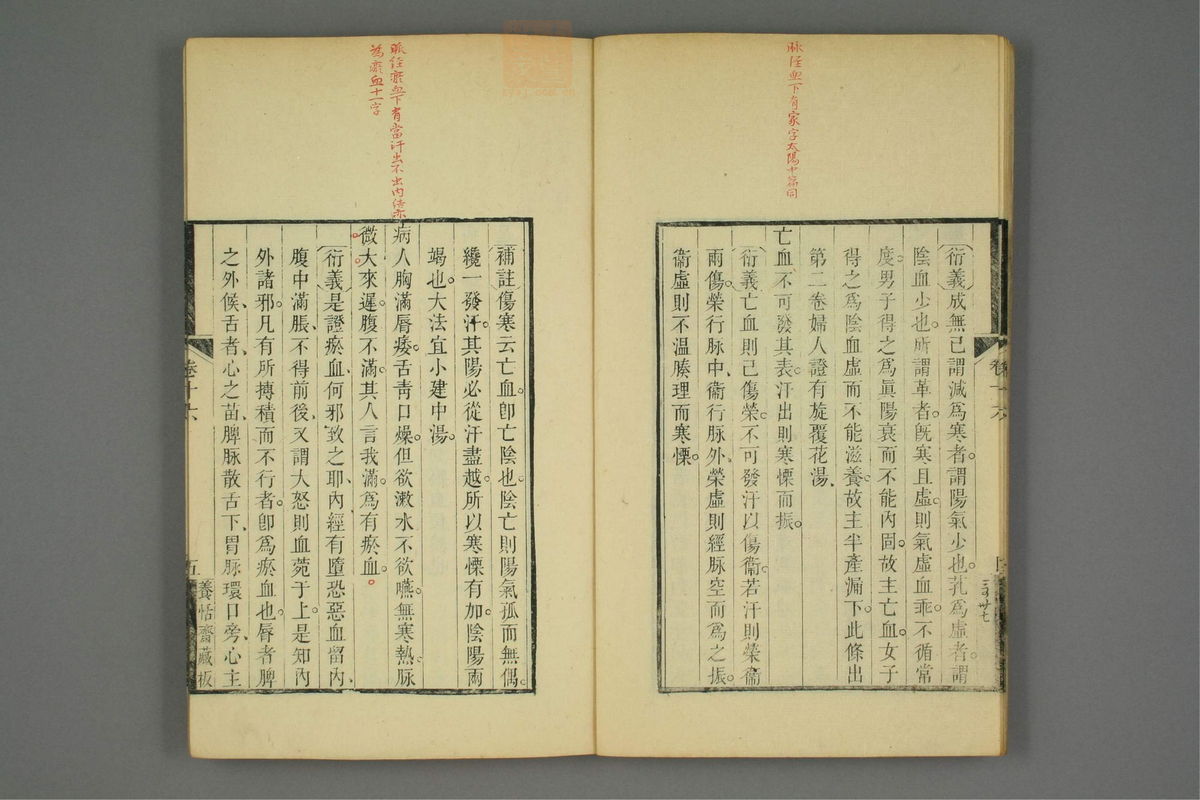 脉経血下有家字太陽中篇同
衍義成無己謂減爲寒者謂陽氣少也芤爲虛者謂
陰血少也所謂革者旣寒且虛則氣虛血乖不循常
度男子得之爲眞陽衰而不能內固故主亡血女子
得之爲陰血虛而不能滋養故主半產漏下此條出
第二卷婦人證有旋覆花湯
亡血不可發其表汗出則寒慄而振
衍義亡血則已傷榮不可發汗以傷衞若汗則榮衞
兩傷榮行脉中衞行脉外榮虛則經脉空而爲之振
衞虛則不温腠理而寒慄
脈経瘀血下有當汗出不出內結亦
為瘀血十一字
補註傷寒云亡血卽亡陰也陰亡則陽氣孤而無偶
纔一發汗其陽必從汗盡越所以寒慄有加陰陽兩
竭也大法宜小建中湯
病人胸滿脣痿舌靑口燥但欲漱水不欲嚥無寒熱脉
微大來遲腹不滿其人言我滿爲有瘀血
衍義是證瘀血何邪致之耶內經有墮恐惡血留內
腹中滿脹不得前後又謂大怒則血菀于上是知內
外諸邪凡有所搏積而不行者卽爲瘀血也脣者脾
之外候舌者心之苗脾脉散舌下胃脉環口旁心主
卷十六
五
養恬齋藏板